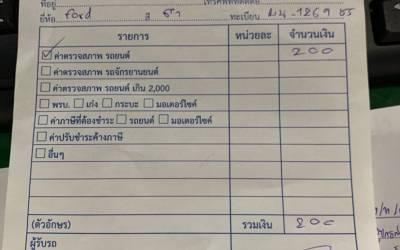 ที่อยู่ โทรศัพท์ที่ติดต่อ
ยี่ห้อ Ford สี ดำ ทะเบียน 1269
รายการ หน่วยละ จำนวนเงิน
ค่าตรวจสภาพ รถยนต์ 200
ค่าตรวจสภาพ รถจักรยานยนต์
ค่าตรวจสภาพ รถยนต์ เกิน 2,000
พรบ. เก๋ง กระบะ มอเตอร์ไซค์
ค่าภาษีที่ต้องชำระ รถยนต์ มอเตอร์ไซค์
ค่าปรับชำระค้างภาษี
อื่นๆ
(ตัวอักษร) รวมเงิน 200
ผู้รับรถ